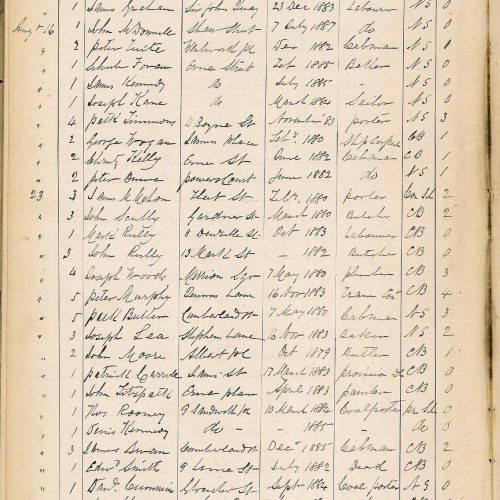 " 1 James Graham Sir John Quay 23 Dec 1883 Labourer NS 0
Augt 16 1 John McDonnell Shaw Street 7 July 1887 do NS 0
" 2 Peter Dec 1882 Cabman NS 0
" 1 Foran Erne Street Feb 1885 Baker NS 0
" 1 James Kennedy do July 1885 - NS 0
" 1 Joseph Kane do March 1884 Sailor NS 0
" 4 Patk Timmons 4 Boyne St November 83 porter NS 3
" 2 George Hogan James Place Feby 1880 Ship CB 1
" 2 Christy Kelly Erne St June 1882 Cabman CB 1
" 2 Peter powers Court June 1882 do NS 1
23 3 James McMahon Fleet St Feby 1880 porter 2
" 3 John Scully Gardiner St March 1880 Butcher CB 2
" 1 Mark Reilly 8 Denzille St Oct 1883 Labourer CB 0
" 3 John Reilly 13 Mark St - 1882 Butcher CB 0
" 4 Joseph Woods Merrion Sqr 7 May 1880 CB 3
" 5 Peter Murphy Queens Lane 16 Nov 1883 Tram CB 4
" 5 Patk Butler Cumberland St 7 May 1880 Cabman NS 3
" 3 Joseph Lea Stephens Lane 16 Nov 1883 Baker NS 2
" 2 John Moore Albert pl Oct 1879 Butler CB 0
" 1 Patrick James St 17 March 1883 provision CB 0
" 1 John Fitzpatk Erne place April 1883 CB 0
" 1 Thos Rooney 9 Sandwith pl 10 March 1882 Coalporter 0
" 1 Denis Kennedy do - 1885 - do 0
" 3 James Swan Cumberland St Decr 1885 Cabman CB 2
" 1 Edwd Smith 9 Lorne St July 1882 Dead CB 0
" 1 Danl Cummins Gloucester St Sept 1884 Coal porter NS 0